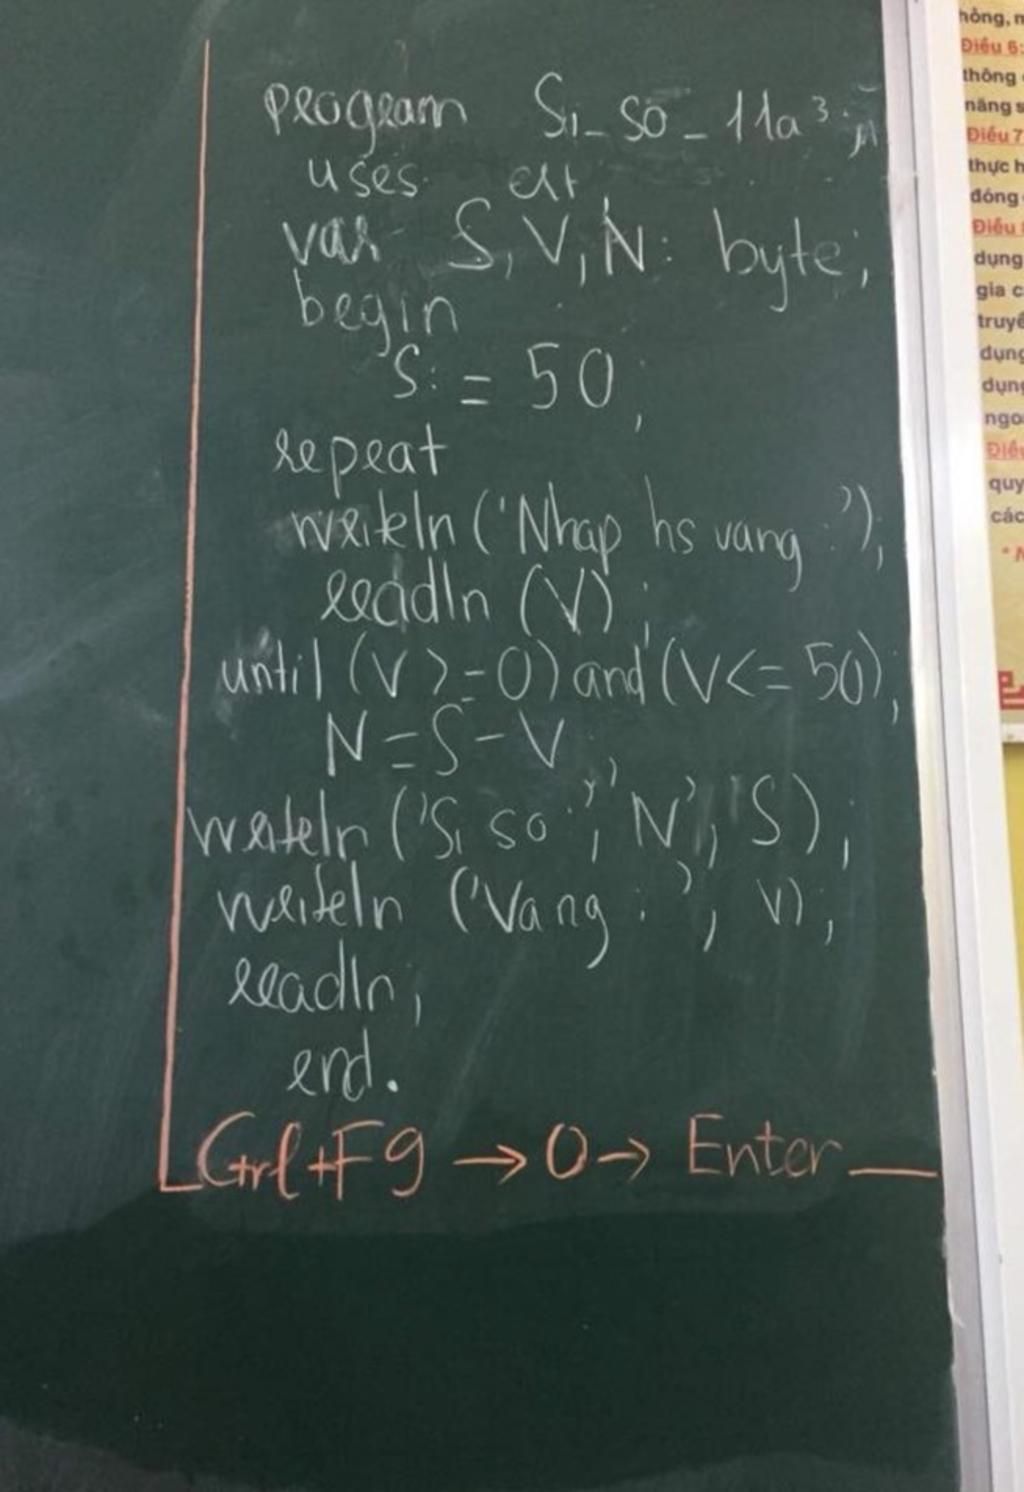 program Si_so_11a3;
uses crt;
var S, V, N: byte;
begin
S:= 50;
repeat
writeln ('Nhap hs vang :');
readln (V);
until (V >=0) and (V<= 50);
N=S-V;
writeln ('Si so:', 'N', 'S);
writeln ('Vang :', V);
readln;
end.
Ctrl+F9 → 0 → Enter
hỏng,
Điều 6:
thông
năng s
Điều 7
thực h
đóng
Điều
dụng
gia c
truyề
dụng
dụng
ngo
Điều
quy
các